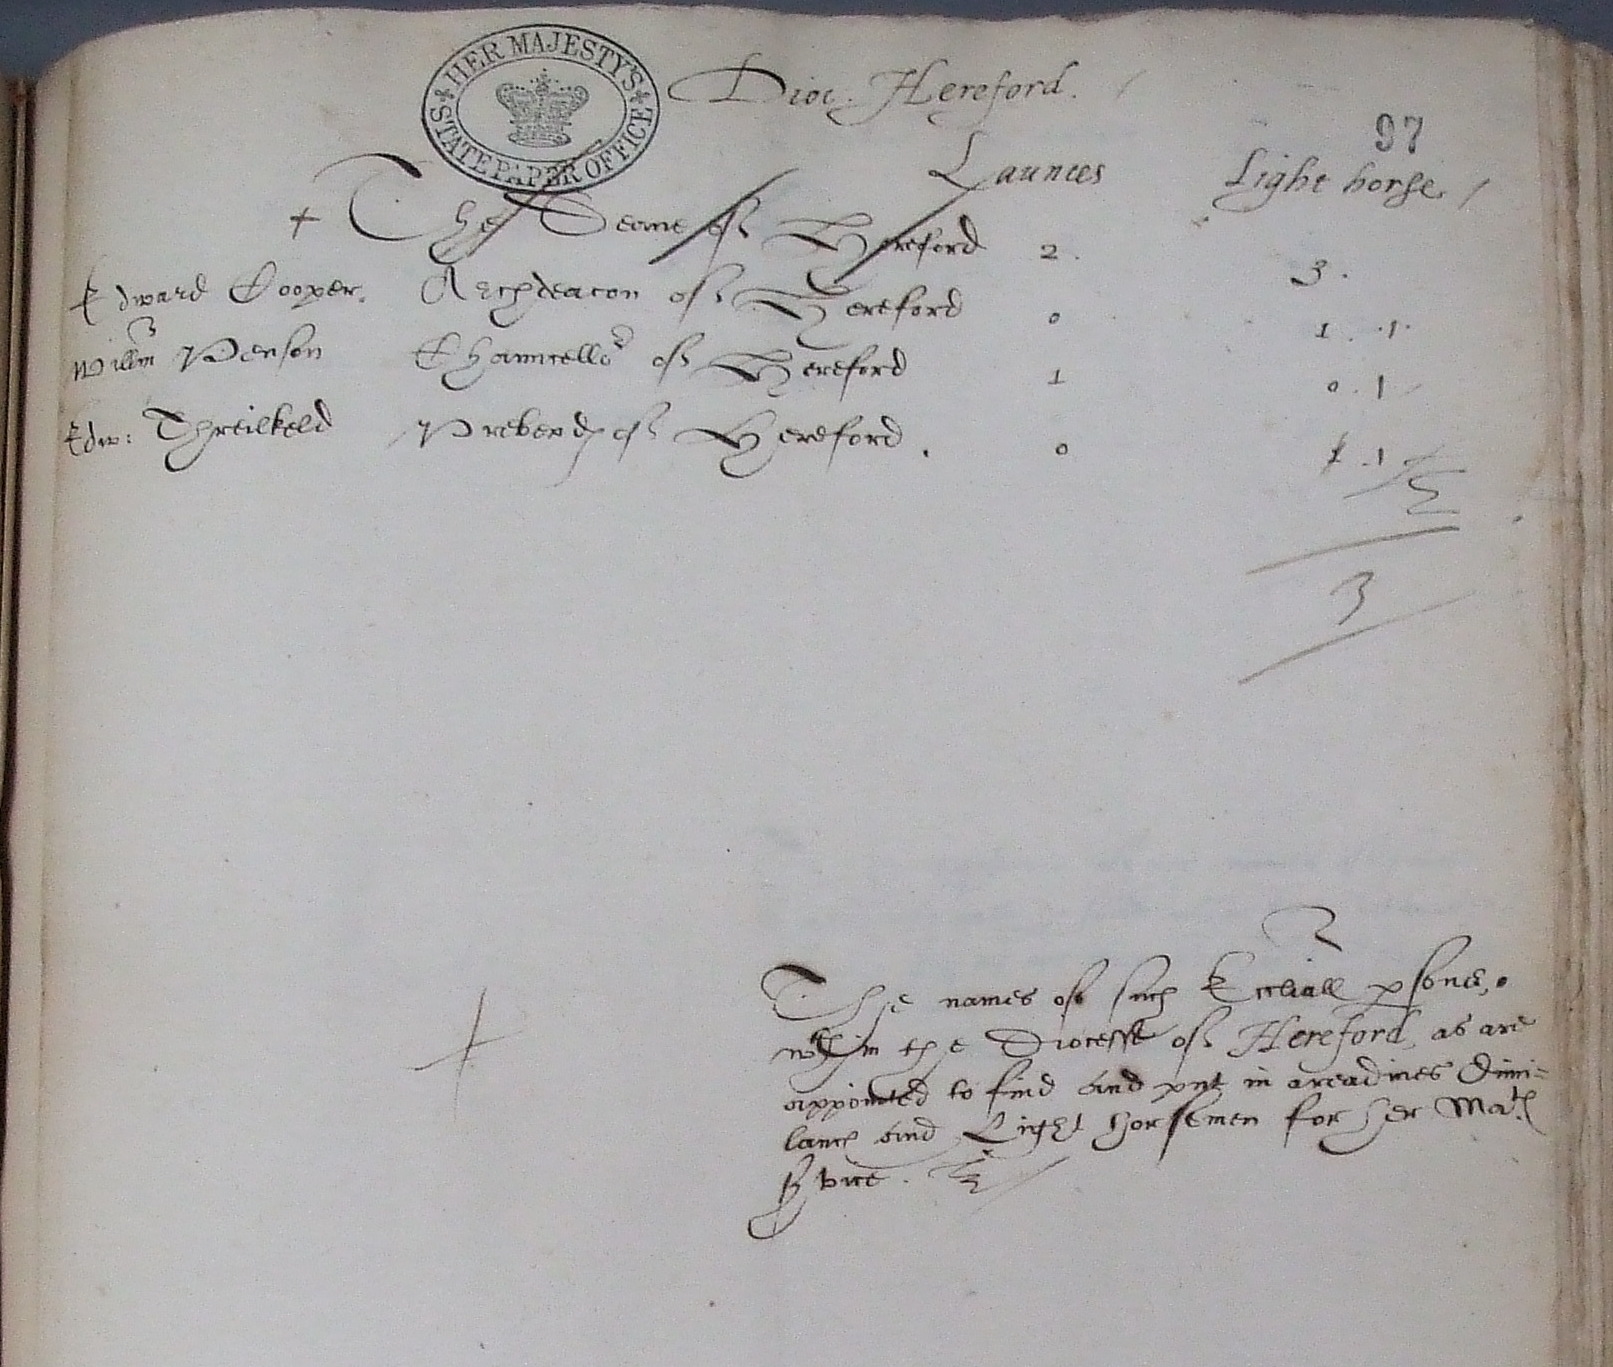 HER MAJESTY'S STATE PAPER OFFICE
Dioc. Hereford.
97
Launces Light horse
+ The Deane of Hereford 2. 3.
Edward Cooper. Archdeacon of Hereford 0 1 . 1.
Willm Penson Chauncellor of Hereford 1 0 . 1
Edw: Threilkeld Prebend of Hereford . 0 1 . 1
3
The names of such Eccliall psones,
wthin the Diocesse of Hereford, as are
appointed to find and putt in areadines Dimi=
lances and Light horsemen for her Matis
svice.